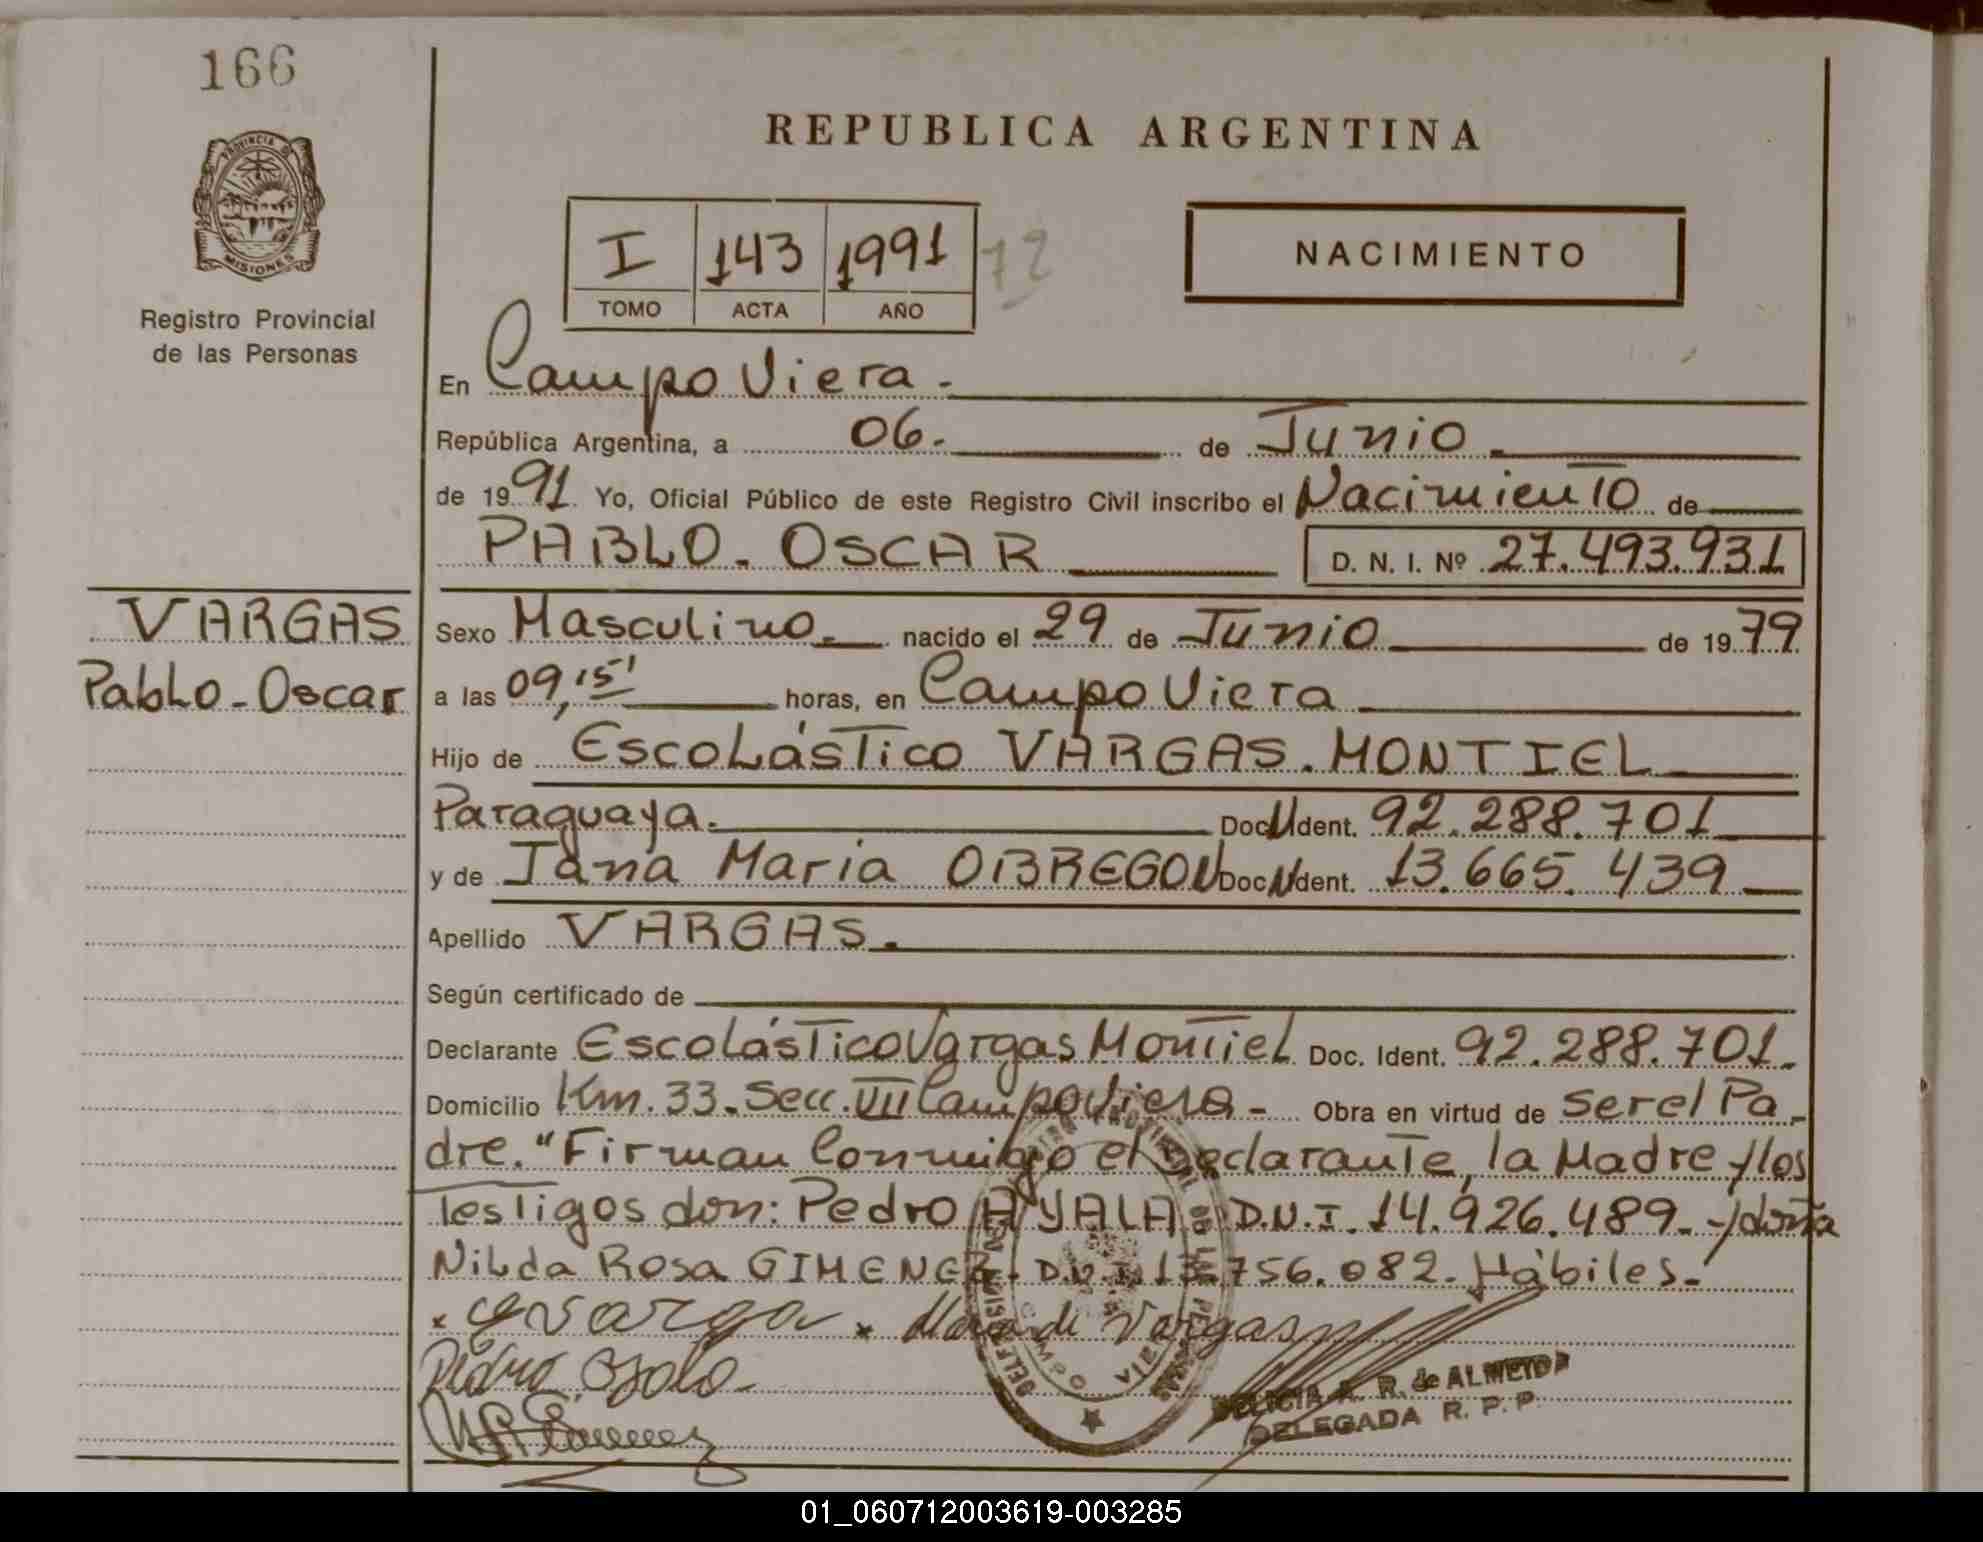 166
PROVINCIA DE
MISIONES
Registro Provincial
de las Personas
REPUBLICA ARGENTINA
I 143 1991 72
TOMO ACTA AÑO
NACIMIENTO
En Campo Viera.
República Argentina, a 06. de Junio
de 1991. Yo, Oficial Público de este Registro Civil inscribo el Nacimiento de
PABLO-OSCAR D. N. I. Nº 27.493.931
VARGAS
Pablo-Oscar
Sexo Masculino. nacido el 29 de Junio de 1979
a las 09,15' horas, en Campo Viera
Hijo de Escolástico VARGAS.MONTIEL
Paraguaya. Doc. Ident. 92.288.701
y de Juana Maria OBREGON Doc. Ident. 13.665.439
Apellido VARGAS.
Según certificado de
Declarante Escolástico Vargas Montiel Doc. Ident. 92.288.701.
Domicilio Km. 33. Secc. VII Campo Viera- Obra en virtud de ser el Pa-
dre. "Firman Conmigo el Declarante, la Madre y los
Testigos don: Pedro AYALA D.N.I. 14.926.489.- y doña
Nilda Rosa GIMENEZ- D.N.I. 13.756.082. Hábiles.-
Vargas de Vargas
Pedro Ayala
DELICIA A. R. de ALMEIDA
DELEGADA R. P. P.
CAMPO VIERA
01_060712003619-003285